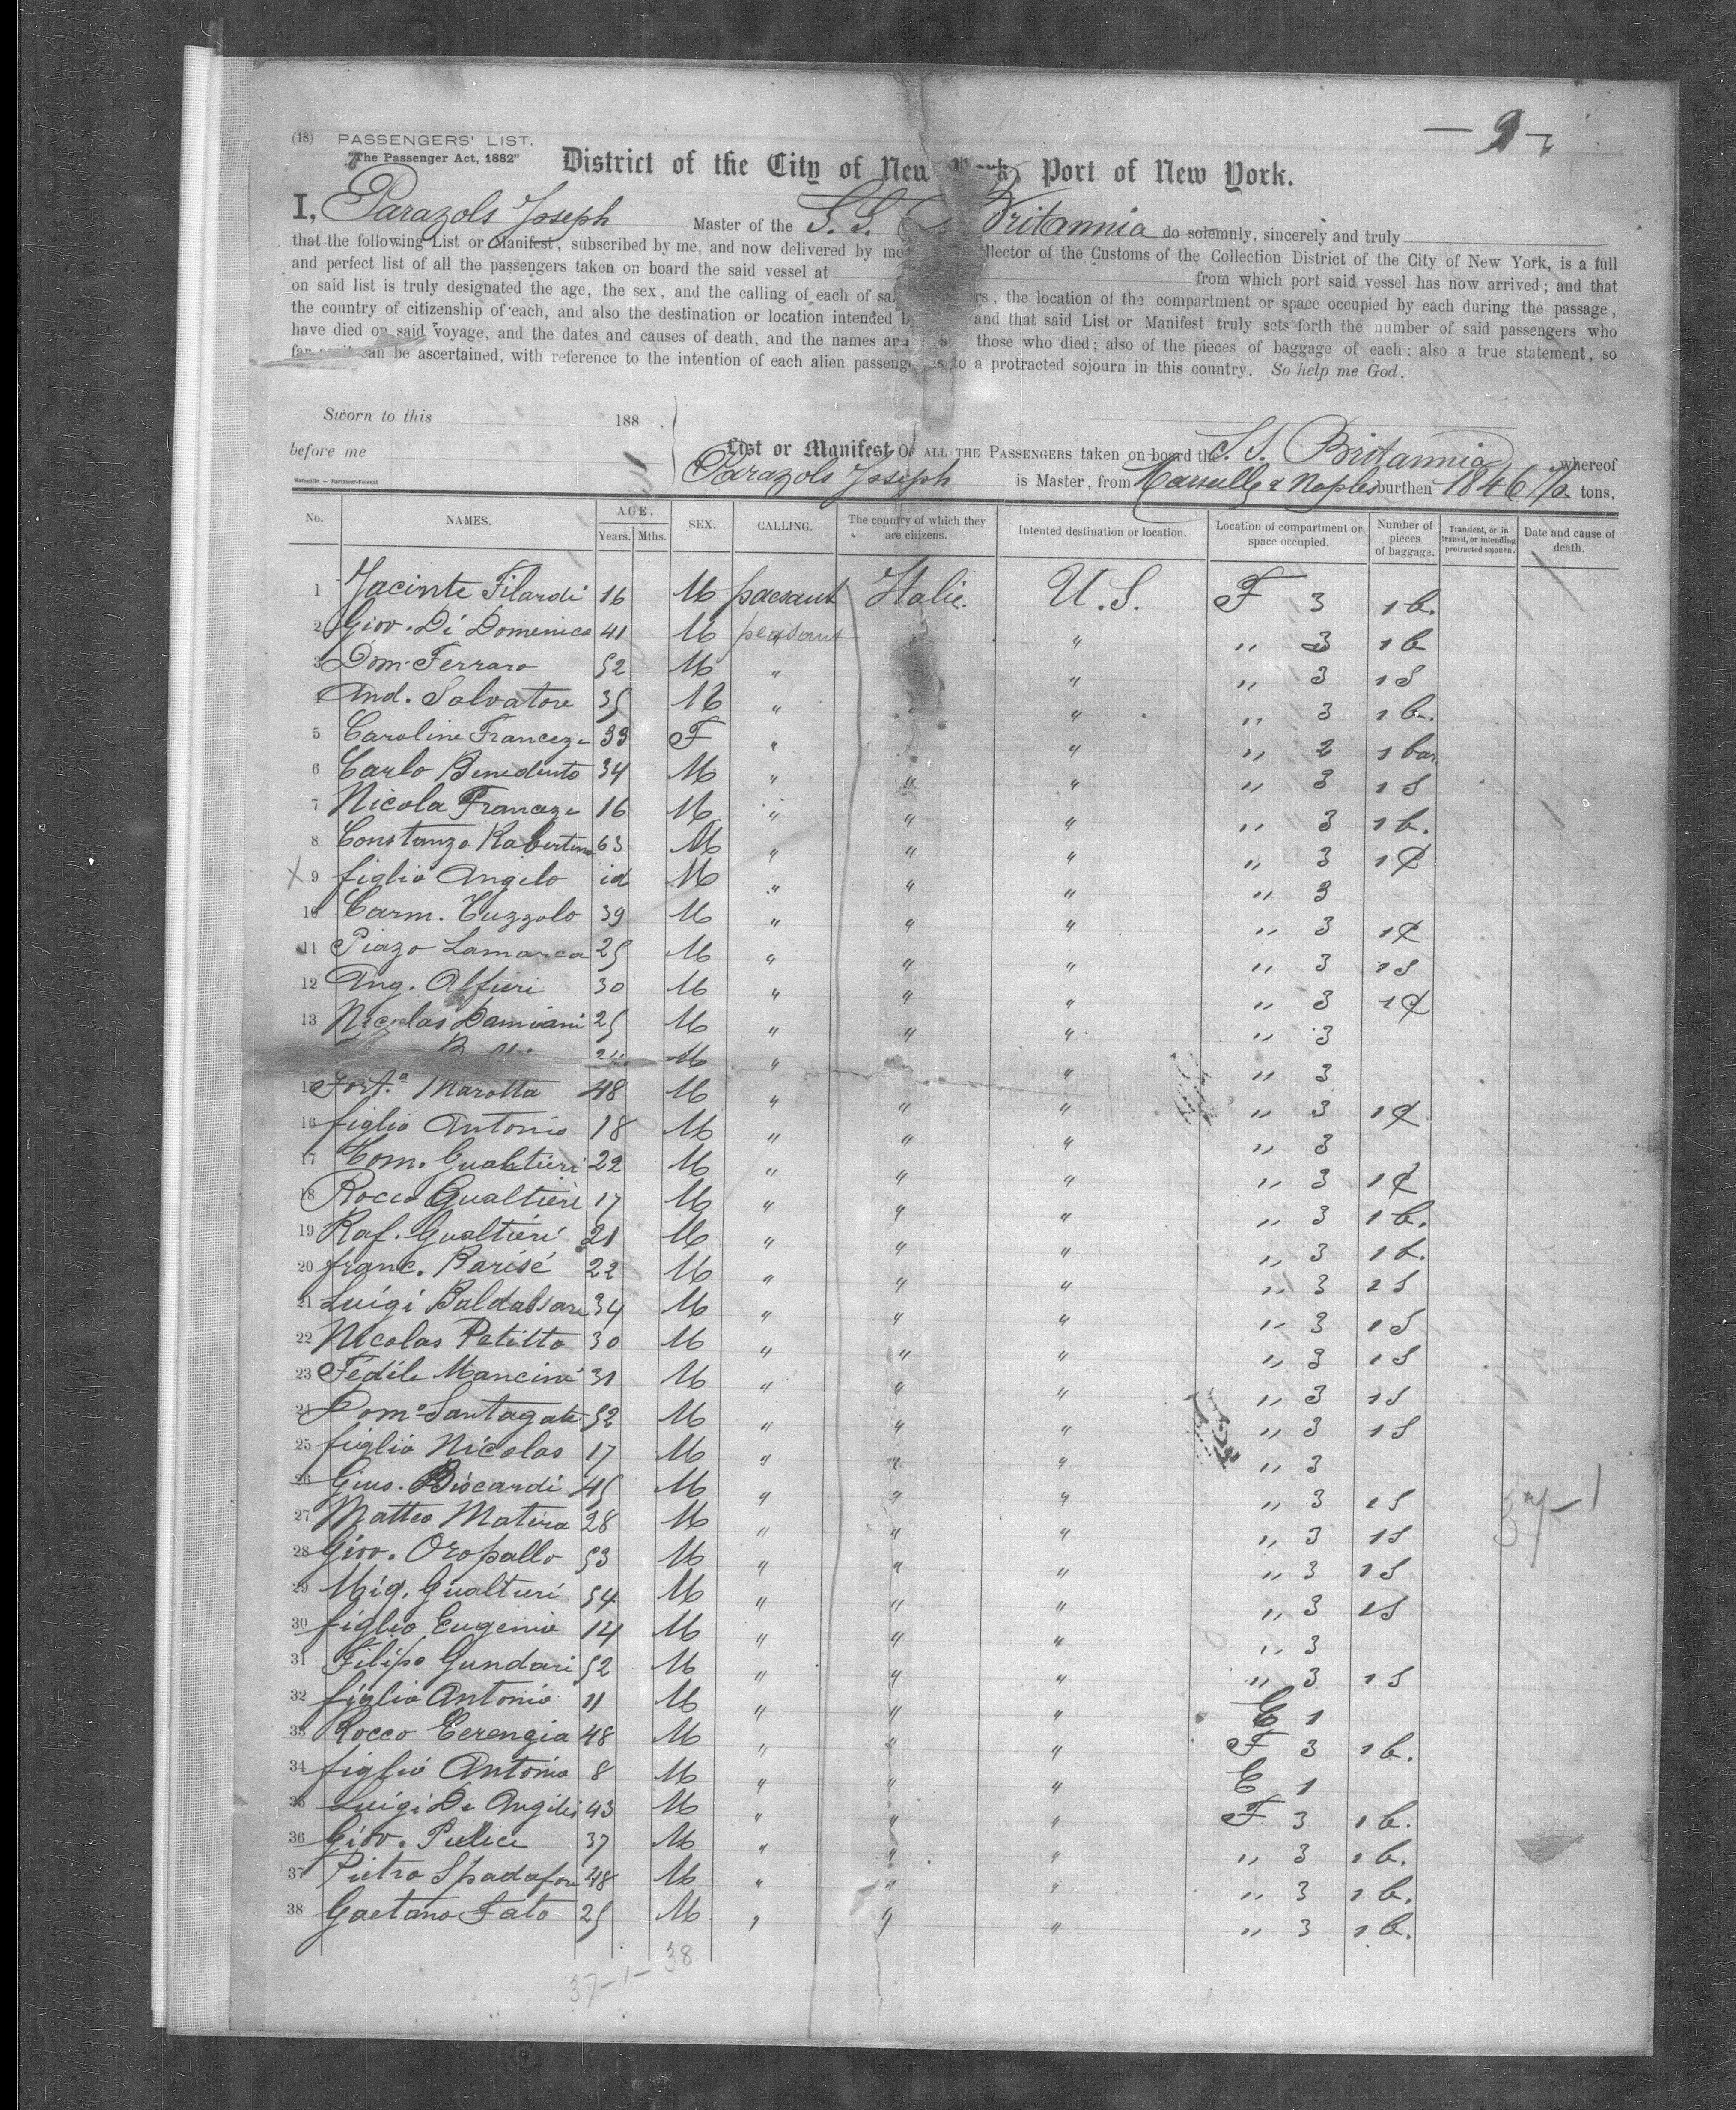 — 9 —
(18) PASSENGERS' LIST.
"The Passenger Act, 1882"
District of the City of New York, Port of New York.
I, Parazols Joseph Master of the S.S. Britannia do solemnly, sincerely and truly
that the following List or Manifest, subscribed by me, and now delivered by me llector of the Customs of the Collection District of the City of New York, is a full
and perfect list of all the passengers taken on board the said vessel at from which port said vessel has now arrived; and that
on said list is truly designated the age, the sex, and the calling of each of sa rs, the location of the compartment or space occupied by each during the passage,
the country of citizenship of each, and also the destination or location intended b and that said List or Manifest truly sets forth the number of said passengers who
have died on said voyage, and the dates and causes of death, and the names an those who died; also of the pieces of baggage of each; also a true statement, so
far as it can be ascertained, with reference to the intention of each alien passenge as to a protracted sojourn in this country. So help me God.
Sworn to this 188 .
before me
List or Manifest OF ALL THE PASSENGERS taken on board the S.S. Britannia whereof
Parazols Joseph is Master, from Marseille & Naples burthen 1846 tons.
No. NAMES. AGE. Years. Mths. SEX. CALLING. The country of which they are chizens. Intented destination or location. Location of compartment or space occupied. Number of pieces of baggage. Transient, or in transit, or intending protracted sojourn. Date and cause of death.
1 Jacinte Filardi 16 M paesant Italie. U.S. F 3 1 b.
2 Giov. Di Domenica 41 M peasant " " 3 1 b
3 Dom. Ferraro 52 M " " " 3 1 S
4 And. Salvatore 35 M " " " " 3 1 b.
5 Caroline Franceze 33 F " " " " 2 1 bar
6 Carlo Benedinto 34 M " " " " 3 1 S
7 Nicola Franceze 16 M " " " " 3 1 b.
8 Constanzo Rabertino 63 M " " " " 3 1 C
X 9 figlio Angelo id M " " " " 3
10 Carm. Cuzzolo 39 M " " " " 3 1 C
11 Piazo Lamarca 25 M " " " " 3 1 S
12 Ang. Alfieri 30 M " " " " 3 1 C
13 Nicolas Damiani 25 M " " " " 3
M " " " 3
15 Fort.a Marotta 48 M " " " " 3 1 C
16 figlio Antonio 18 M " " " " 3
17 Com. Gualtieri 22 M " " " " 3 1 C
18 Rocco Gualtieri 17 M " " " " 3 1 b.
19 Raf. Gualtieri 21 M " " " " 3 1 b.
20 franc. Parisé 22 M " " " " 3 1 S
21 Luigi Baldassare 34 M " " " " 3 1 S
22 Nicolas Petitto 30 M " " " " 3 1 S
23 Fédéle Mancini 31 M " " " " 3 1 S
24 Dom.o Santagate 52 M " " " " 3 1 S
25 figlio Nicolas 17 M " " " " 3
26 Gius. Biscardi 45 M " " " " 3 1 S
27 Matteo Matera 28 M " " " " 3 1 S
28 Giov. Oropallo 53 M " " " " 3 1 S
29 Mig. Gualtieri 54 M " " " " 3 1 S
30 figlio Eugenio 14 M " " " " 3
31 Filipo Gundari 52 M " " " " 3 1 S
32 figlio Antonio 11 M " " " C 1
33 Rocco Cerengia 48 M " " " F 3 1 b.
34 figlio Antonio 8 M " " " C 1
35 Luigi De Angilis 43 M " " " F 3 1 b.
36 Giov. Pulice 37 M " " " " 3 1 b.
37 Pietro Spadafore 48 M " " " " 3 1 b.
38 Gaetano Fato 25 M " " " " 3 1 b.
37-1- 38